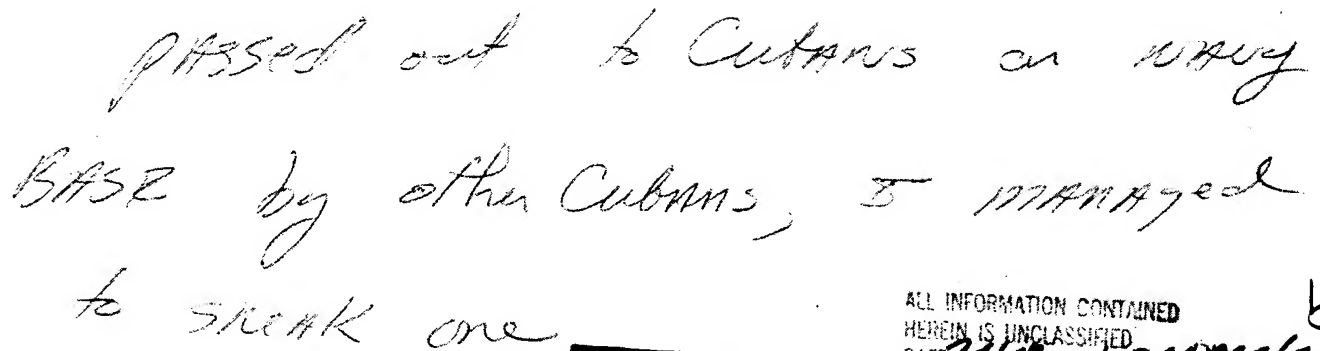 passed out to Cubans on Navy
BASE by other Cubans, I managed
to sneak one
ALL INFORMATION CONTAINED
HEREIN IS UNCLASSIFIED